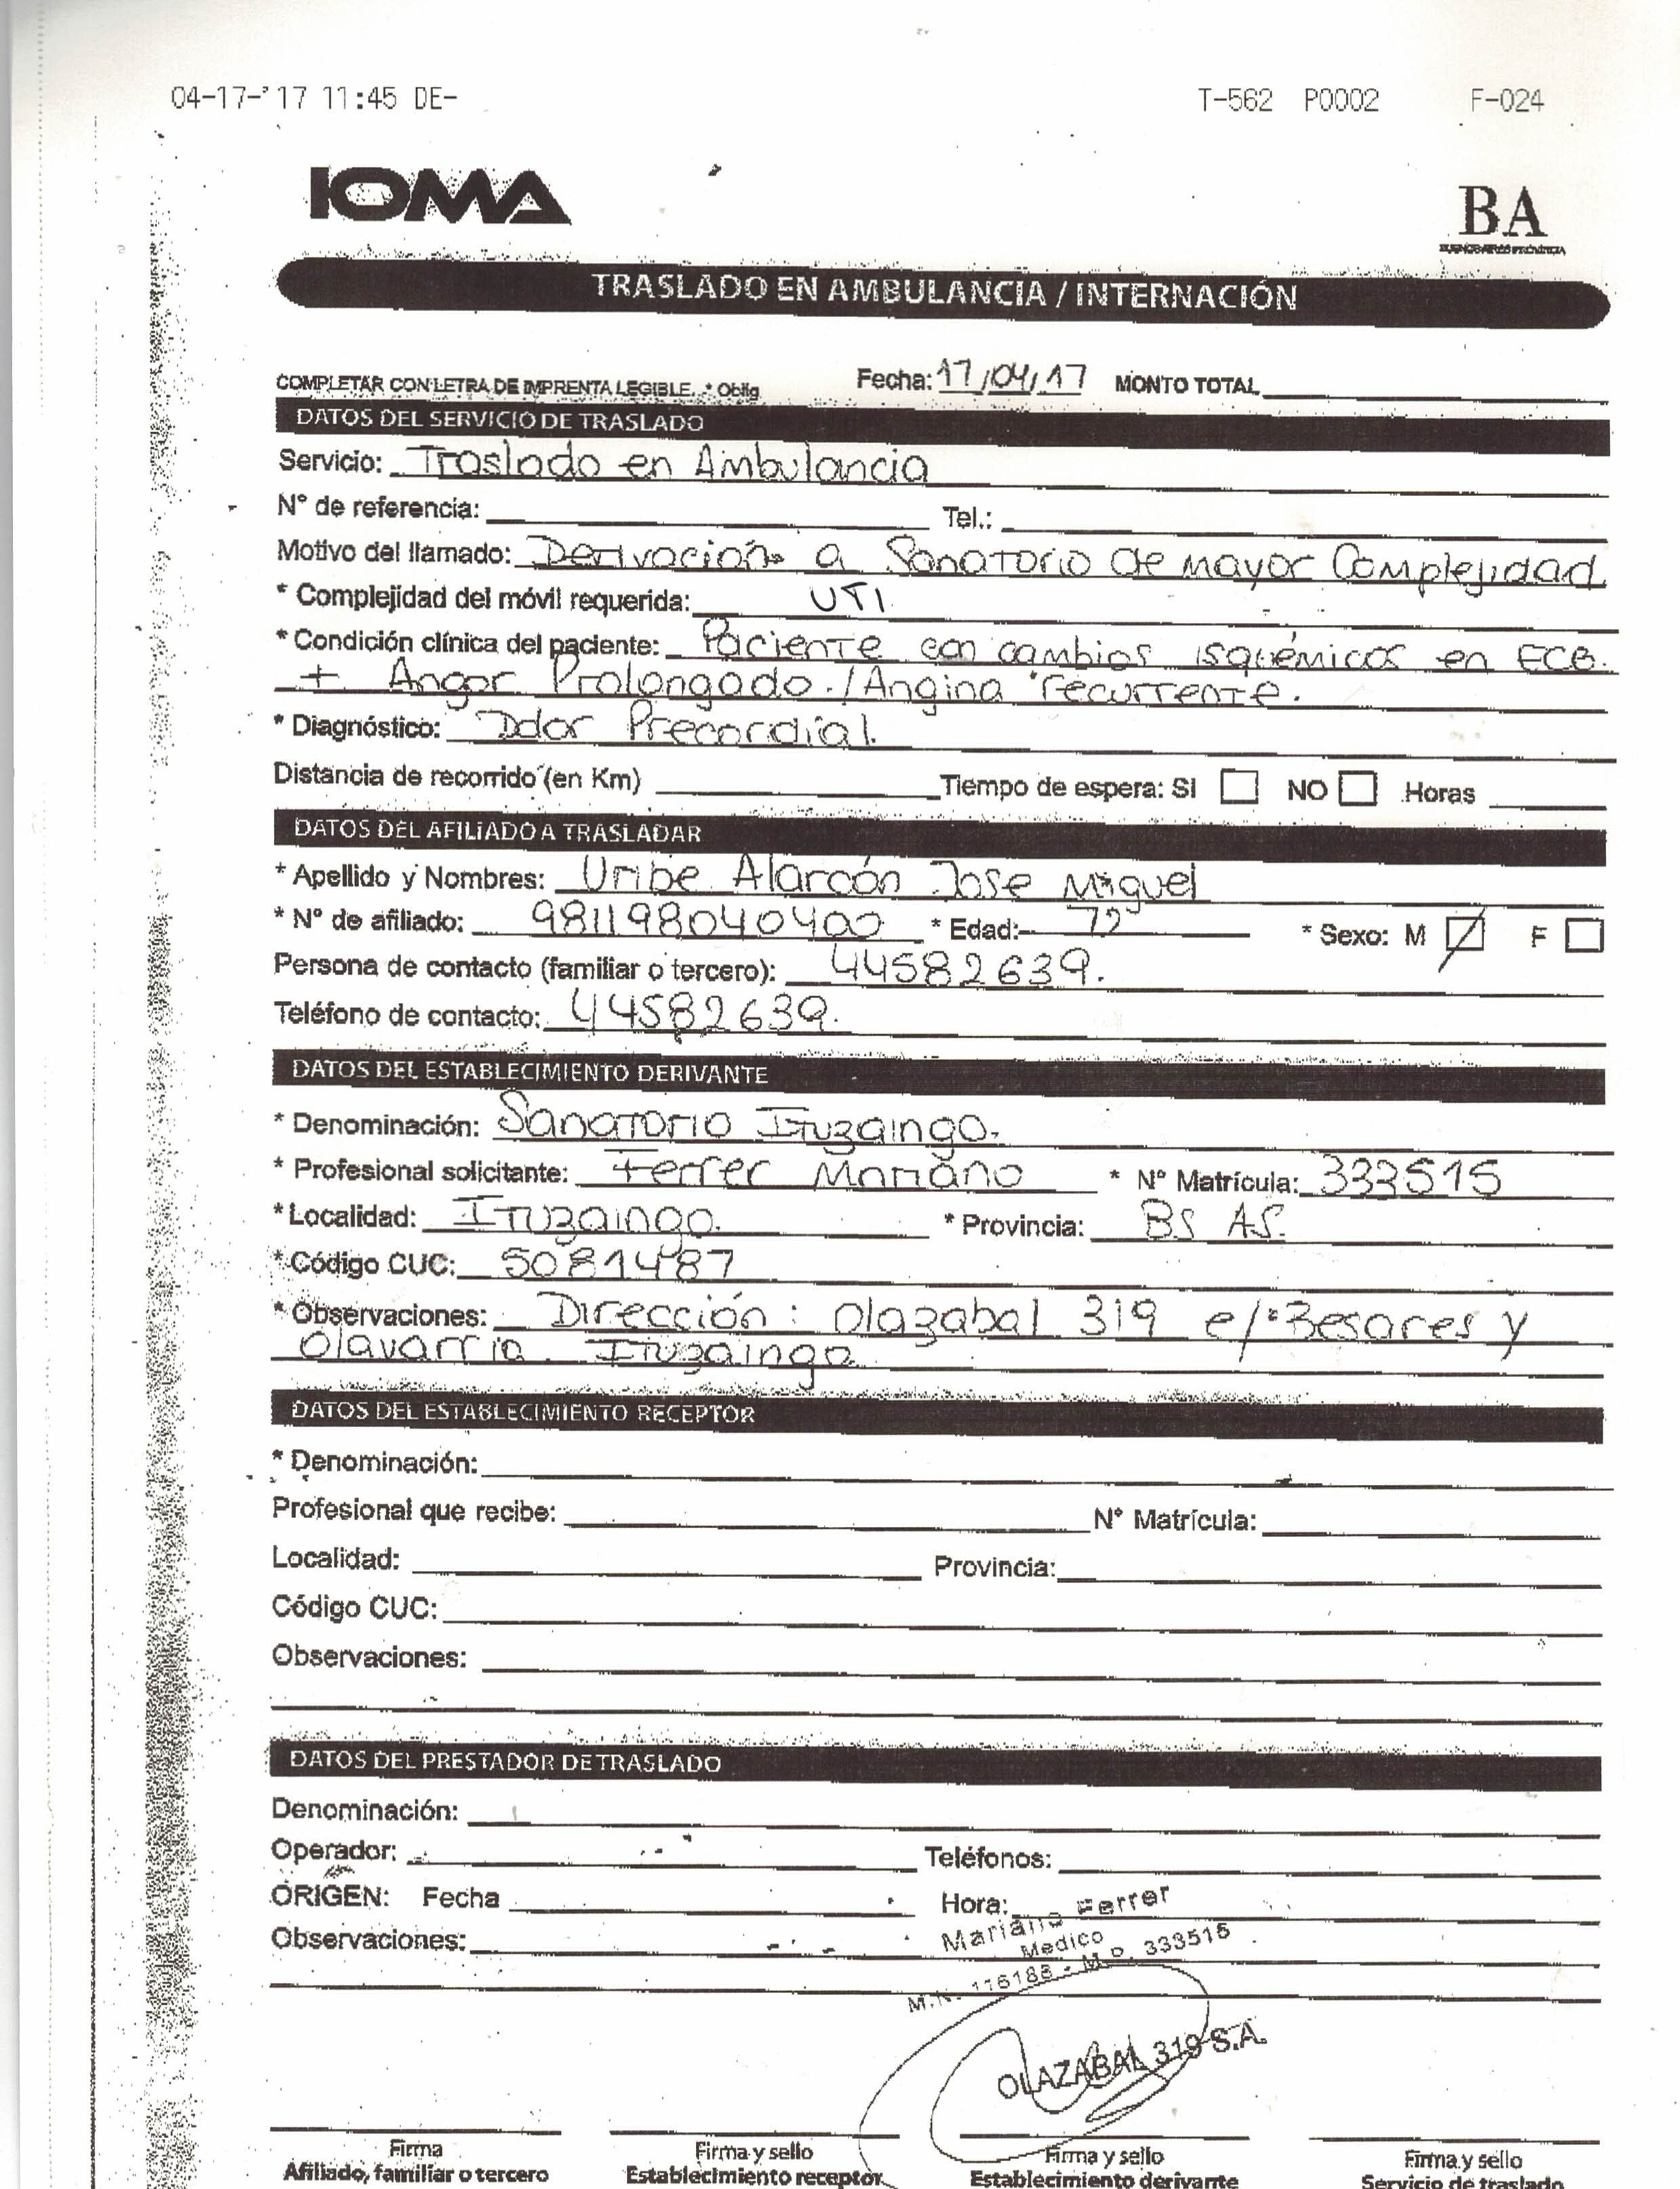 04-17-'17 11:45 DE- T-562 P0002 F-024
IOMA
BA
BUENOS AIRES PROVINCIA
TRASLADO EN AMBULANCIA / INTERNACIÓN
COMPLETAR CON LETRA DE IMPRENTA LEGIBLE. * Oblig Fecha: 17/04/17 MONTO TOTAL
DATOS DEL SERVICIO DE TRASLADO
Servicio: Traslado en Ambulancia
N° de referencia: Tel.:
Motivo del llamado: Derivación a Sanatorio de mayor Complejidad
* Complejidad del móvil requerida: UTI
* Condición clínica del paciente: Paciente con cambios isquémicos en ECG.
+ Angor Prolongado./Angina recurrente.
* Diagnóstico: Dolor Precordial.
Distancia de recorrido (en Km) Tiempo de espera: SI NO Horas
DATOS DEL AFILIADO A TRASLADAR
* Apellido y Nombres: Uribe Alarcón Jose Miguel
* N° de afiliado: 981198040400 * Edad: * Sexo: M F
Persona de contacto (familiar o tercero): 44582639.
Teléfono de contacto: 44582639.
DATOS DEL ESTABLECIMIENTO DERIVANTE
* Denominación: Sanatorio Ituzaingo.
* Profesional solicitante: Ferrer Mariano * N° Matrícula: 333515
* Localidad: Ituzaingo. * Provincia: BS AS.
* Código CUC: 5081487
* Observaciones: Dirección: Olazabal 319 e/ Besares y
Olavarria Ituzaingo
DATOS DEL ESTABLECIMIENTO RECEPTOR
* Denominación:
Profesional que recibe: N° Matrícula:
Localidad: Provincia:
Código CUC:
Observaciones:
DATOS DEL PRESTADOR DE TRASLADO
Denominación:
Operador: Teléfonos:
ORIGEN: Fecha Hora:
Observaciones:
Mariano Ferrer
Medico
M.N. 116188 - M.P. 333515
OLAZABAL 319 S.A.
Firma
Afiliado, familiar o tercero
Firma y sello
Establecimiento receptor
Firma y sello
Establecimiento derivante
Firma y sello
Servicio de traslado